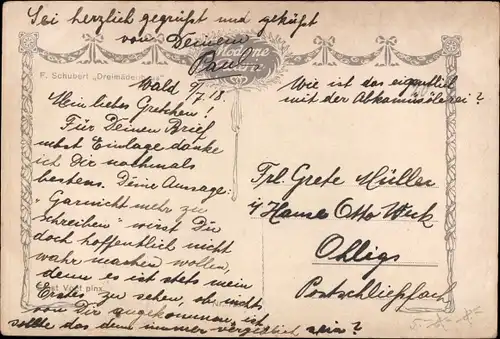 Sei herzlich gegrüßt und geküßt
von Deinem
Paul.
Moderne
F. Schubert „Dreimäderlhaus"
Wald 9/7.18.
Wie ist das eigentlich
mit der Abkammsölerei?
Mein liebes Gretchen!
Für Deinen Brief
nebst Einlage danke
ich Dir nochmals
bestens. Deine Aussage:
"Garnicht mehr zu
schreiben" wirst Du
doch hoffentlich nicht
wahr machen wollen,
denn es ist stets mein
Erstes zu sehen, ob nichts
von Dir angekommen ist,
sollte das denn immer vergeblich sein?
Frl. Grete Müller
Hause Otto
Ohligs
Postschließfach
pinx.